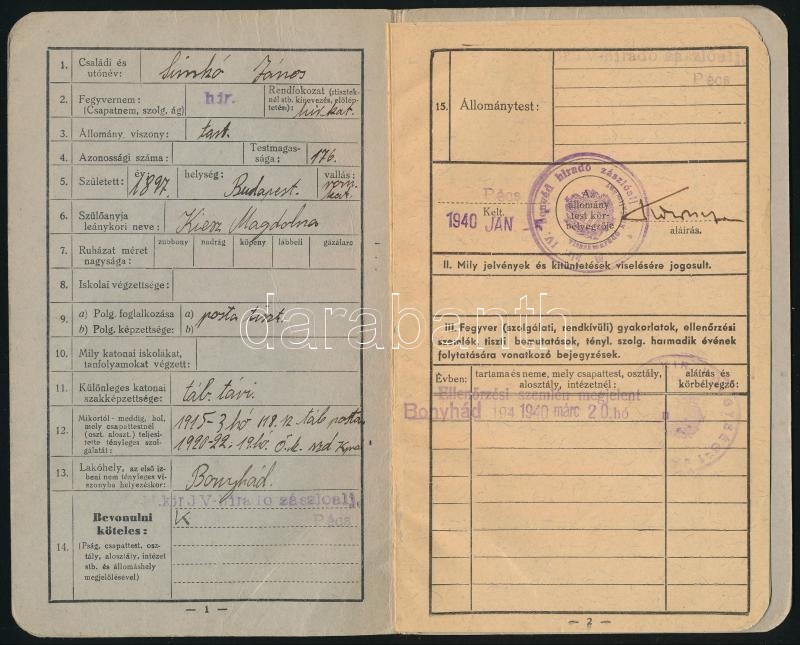 1. Családi és utónév: Simkó János
2. Fegyvernem: (Csapatnem, szolg. ág) hir. Rendfokozat (tisztek-
nél stb. kinevezés, előlép-
tetés):
3. Állomány viszony: tart.
4. Azonossági száma: Testmagas-
sága: 176.
5. Született: év 1897. helység: Budapest. vallás: rom. kat.
6. Szülőanyja
leánykori neve: Magdolna
7. Ruházat méret
nagysága: zubbony nadrág köpeny lábbeli gázálarc
8. Iskolai végzettsége:
9. a) Polg. foglalkozása a) posta tiszt.
b) Polg. képzettsége: b)
10. Mily katonai iskolákat,
tanfolyamokat végzett:
11. Különleges katonai
szakképzettsége: táb. távi.
12. Mikortól - meddig, hol,
mely csapattestnél
(oszt. aloszt.) teljesi-
tette tényleges szol-
gálatát: 1915-3 hó táb. posta
1920-22.
13. Lakóhely, az első iz-
beni nem tényleges vi-
szonyba helyezéskor: Bonyhád.
kör. IV-hiradó zászlóalj.
Pécs
14. Bevonulni
köteles:
(Pság, csapattest, osz-
tály, alosztály, intézet
stb. és állomáshely
megjelölésével)
— 1 —
IV-hiradó zászlóalj.
Pécs
15. Állománytest:
Honvéd hiradó zászlóalj
Pécs
1940 JAN - Kelt.
Az
állomány
test kör-
bélyegzője
aláírás.
II. Mily jelvények és kitüntetések viselésére jogosult.
III. Fegyver (szolgálati, rendkívüli) gyakorlatok, ellenőrzési
szemlék, tiszti bemutatások, tényl. szolg. harmadik évének
folytatására vonatkozó bejegyzések.
Évben: tartama és neme, mely csapattest, osztály,
alosztály, intézetnél: aláírás és
körbélyegző:
Ellenőrzési szemlén megjelent
Bonyhád 194 1940 márc 20. hó n
— 2 —
darabanth